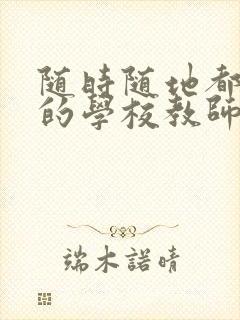 随時随地都
的學校教師
端木諾晴